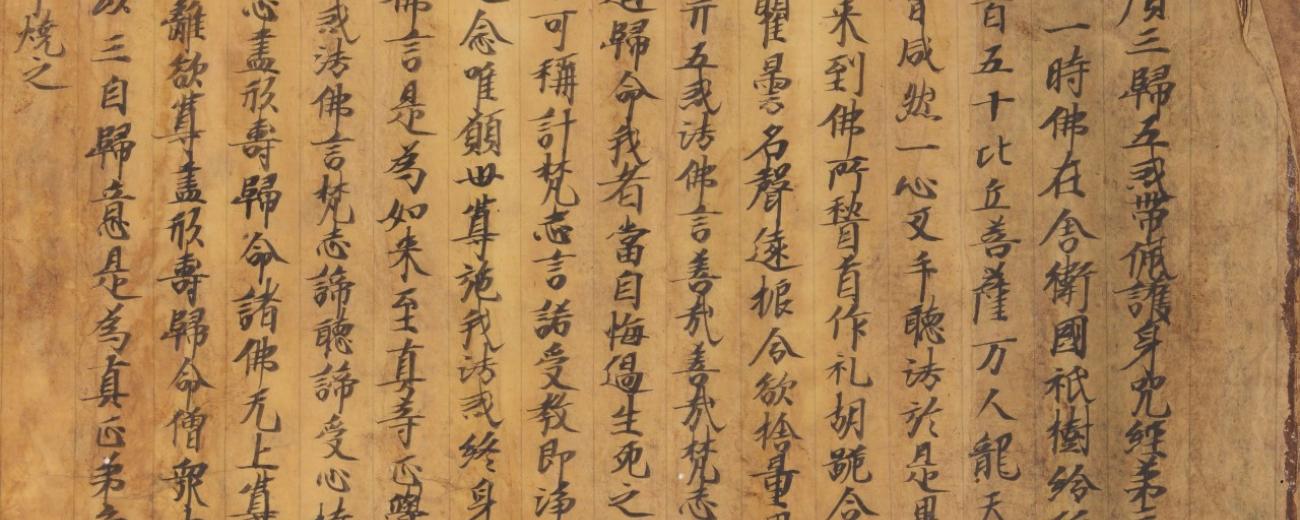 三歸五戒帶佩護身咒經第
一時佛在舍衛國祇樹給
百五十比丘菩薩万人龍天
咸然一心叉手聽法於是
来到佛所稽首作礼胡跪合
瞿曇名聲遠振今欲捨
五戒法佛言善哉善哉梵志
歸命我者當自悔過生死之
可稱計梵志言諾受教即淨
念唯願世尊施我法戒終身
佛言是為如来至真等正覺
戒法佛言梵志諦聽諦受心
志盡形壽歸命諸佛无上尊
離欲尊盡形壽歸命僧衆
三自歸竟是為真正弟子
燒之